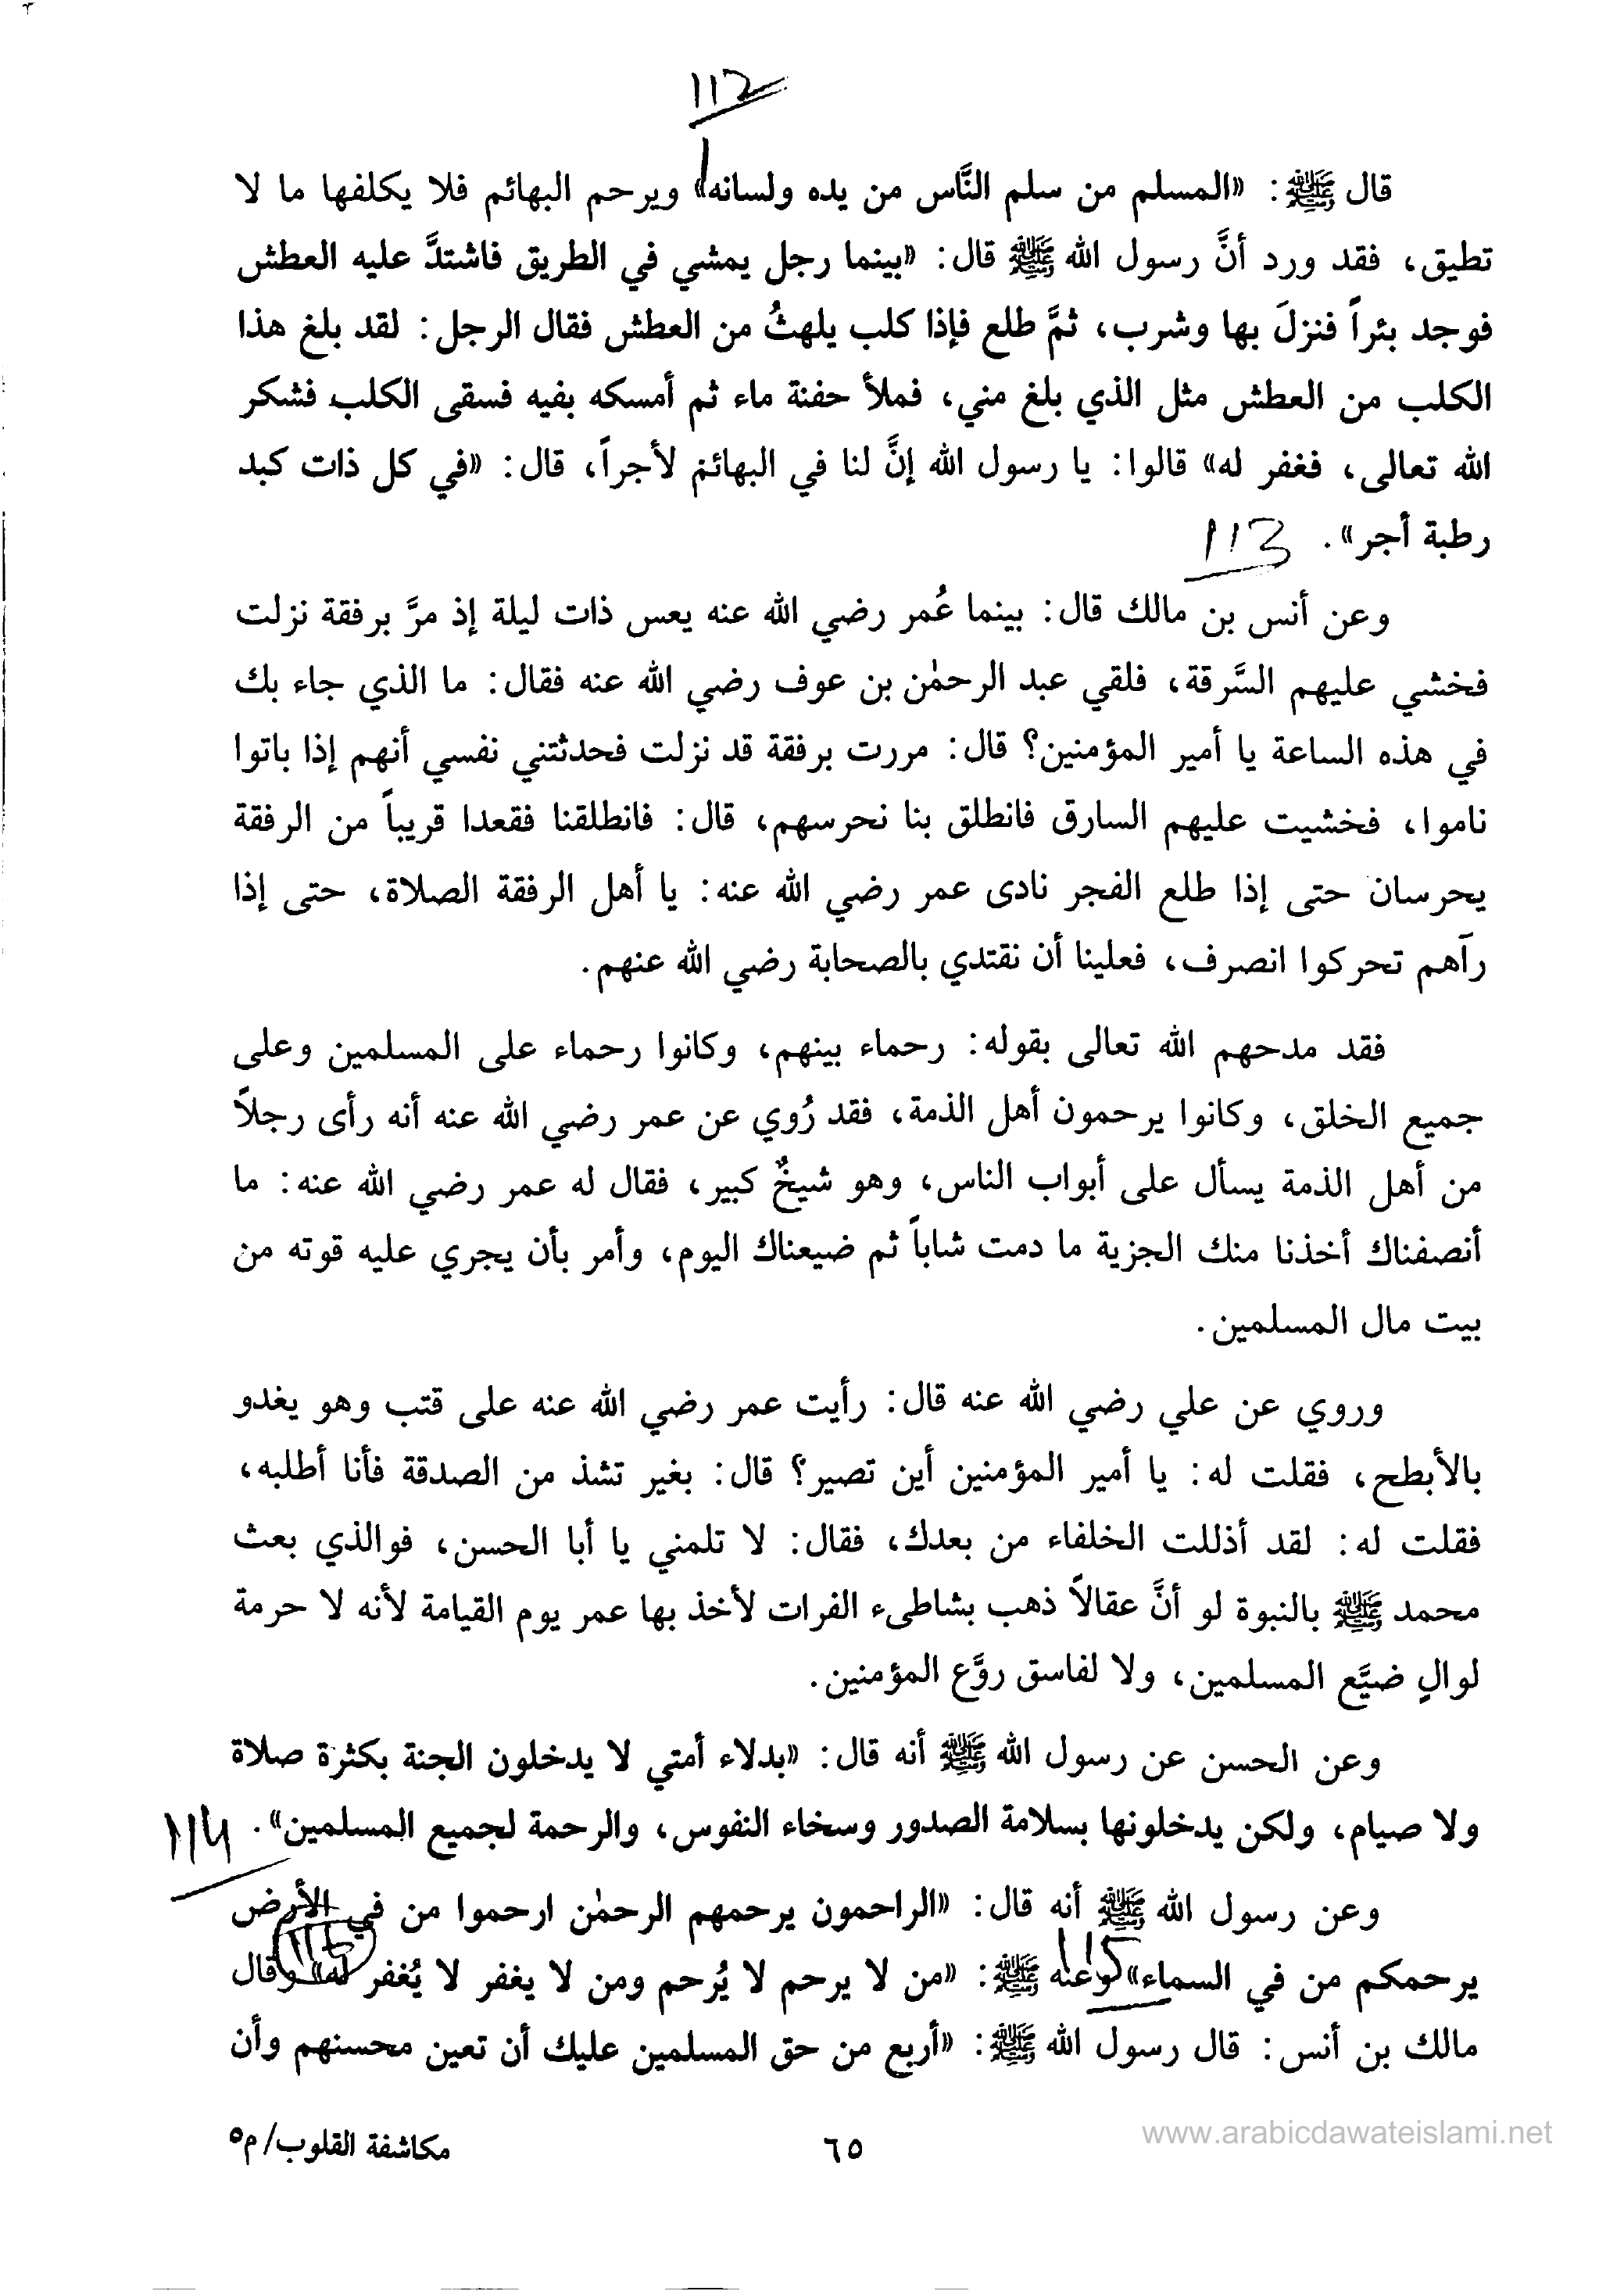 112
قال ﷺ: «المسلم من سلم النَّاس من يده ولسانه» ويرحم البهائم فلا يكلفها ما لا
تطيق، فقد ورد أنَّ رسول الله ﷺ قال: «بينما رجل يمشي في الطريق فاشتدَّ عليه العطش
فوجد بئراً فنزلَ بها وشرب، ثمَّ طلع فإذا كلب يلهثُ من العطش فقال الرجل: لقد بلغ هذا
الكلب من العطش مثل الذي بلغ مني، فملأ حفنة ماء ثم أمسكه بفيه فسقى الكلب فشكر
الله تعالى، فغفر له» قالوا: يا رسول الله إنَّ لنا في البهائم لأجراً، قال: «في كل ذات كبد
رطبة أجر». 113
وعن أنس بن مالك قال: بينما عُمر رضي الله عنه يعس ذات ليلة إذ مرَّ برفقة نزلت
فخشي عليهم السَّرقة، فلقي عبد الرحمٰن بن عوف رضي الله عنه فقال: ما الذي جاء بك
في هذه الساعة يا أمير المؤمنين؟ قال: مررت برفقة قد نزلت فحدثتني نفسي أنهم إذا باتوا
ناموا، فخشيت عليهم السارق فانطلق بنا نحرسهم، قال: فانطلقنا فقعدا قريباً من الرفقة
يحرسان حتى إذا طلع الفجر نادى عمر رضي الله عنه: يا أهل الرفقة الصلاة، حتى إذا
رآهم تحركوا انصرف، فعلينا أن نقتدي بالصحابة رضي الله عنهم.
فقد مدحهم الله تعالى بقوله: رحماء بينهم، وكانوا رحماء على المسلمين وعلى
جميع الخلق، وكانوا يرحمون أهل الذمة، فقد رُوي عن عمر رضي الله عنه أنه رأى رجلاً
من أهل الذمة يسأل على أبواب الناس، وهو شيخٌ كبير، فقال له عمر رضي الله عنه: ما
أنصفناك أخذنا منك الجزية ما دمت شاباً ثم ضيعناك اليوم، وأمر بأن يجري عليه قوته من
بيت مال المسلمين.
وروي عن علي رضي الله عنه قال: رأيت عمر رضي الله عنه على قتب وهو يغدو
بالأبطح، فقلت له: يا أمير المؤمنين أين تصير؟ قال: بغير تشذ من الصدقة فأنا أطلبه،
فقلت له: لقد أذللت الخلفاء من بعدك، فقال: لا تلمني يا أبا الحسن، فوالذي بعث
محمد ﷺ بالنبوة لو أنَّ عقالاً ذهب بشاطىء الفرات لأخذ بها عمر يوم القيامة لأنه لا حرمة
لوالٍ ضيَّع المسلمين، ولا لفاسق روَّع المؤمنين.
وعن الحسن عن رسول الله ﷺ أنه قال: «بدلاء أمتي لا يدخلون الجنة بكثرة صلاة
ولا صيام، ولكن يدخلونها بسلامة الصدور وسخاء النفوس، والرحمة لجميع المسلمين». 114
وعن رسول الله ﷺ أنه قال: «الراحمون يرحمهم الرحمٰن ارحموا من في الأرض
يرحمكم من في السماء» وعنه ﷺ: «من لا يرحم لا يُرحم ومن لا يغفر لا يُغفر له» وقال
مالك بن أنس: قال رسول الله ﷺ: «أربع من حق المسلمين عليك أن تعين محسنهم وأن
مكاشفة القلوب/ م٥
٦٥
www.arabicdawateislami.net